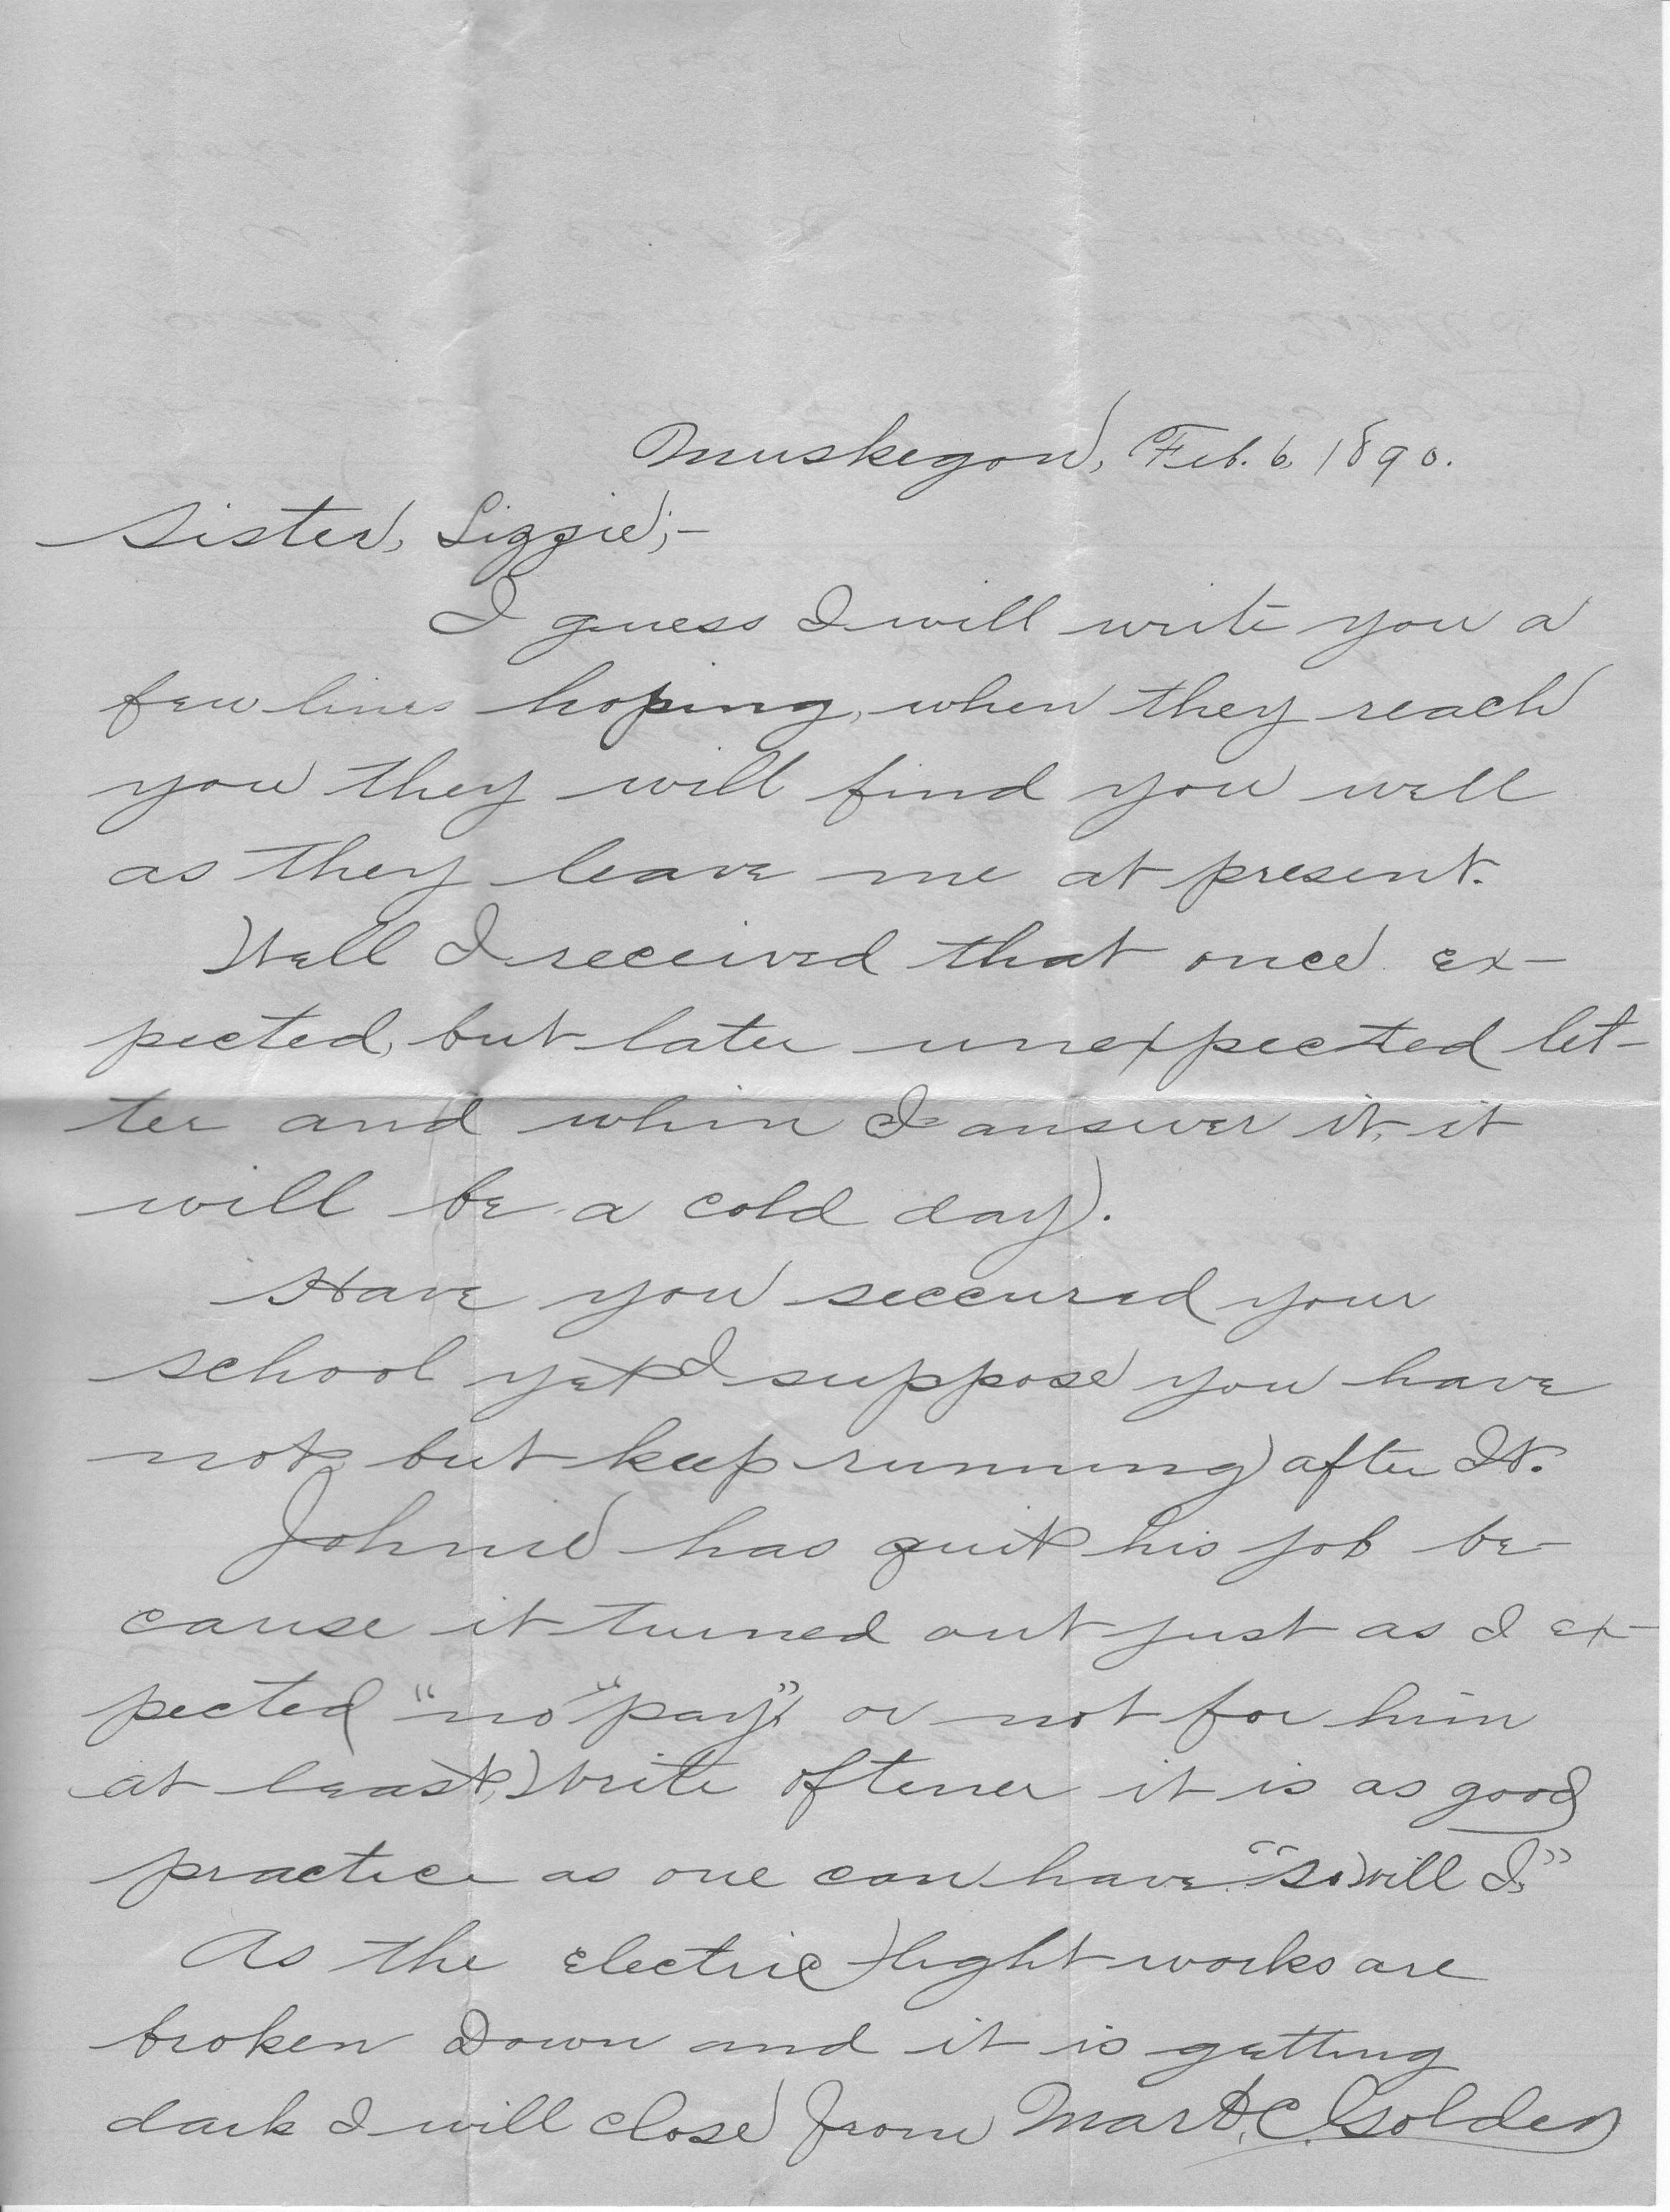 Muskegon, Feb. 6, 1890.
Sister, Lizzie;-
I guess I will write you a
few lines hoping, when they reach
you they will find you well
as they leave me at present.
Well I received that once ex-
pected, but later unexpected let-
ter and when I answer it, it
will be a cold day.
Have you seccured your
school yet I suppose you have
not but keep running after It.
Johnie has quit his job be-
cause it turned out just as I ex-
pected "no "pay", or not for him
at least, Write oftener it is as good
practice as one can have "So will I,"
As the electric light works are
broken Down and it is getting
dark I will close from Mart. C. Golden